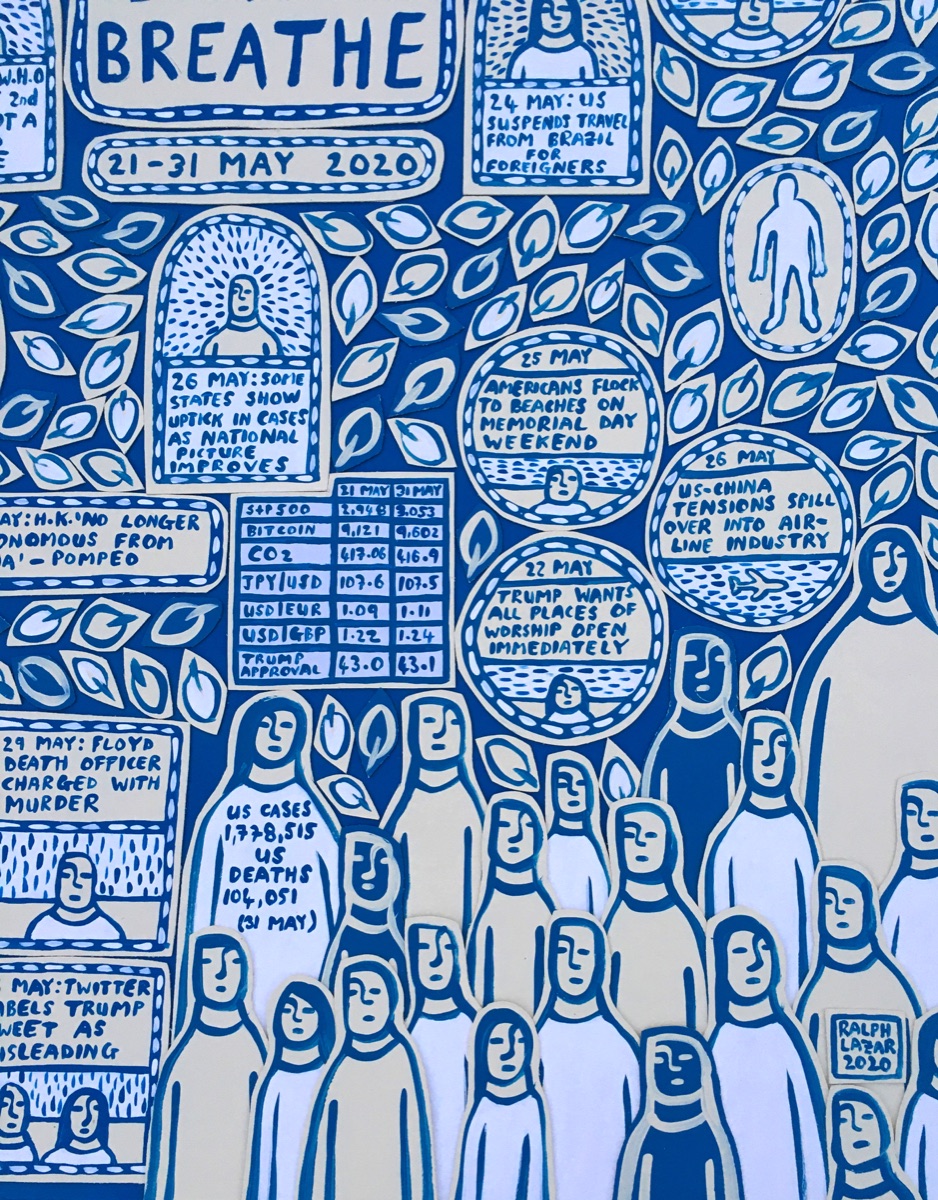 BREATHE
21-31 MAY 2020
W.H.O
2nd
OT A
E
24 MAY: US
SUSPENDS TRAVEL
FROM BRAZIL
FOR
FOREIGNERS
26 MAY: SOME
STATES SHOW
UPTICK IN CASES
AS NATIONAL
PICTURE
IMPROVES
25 MAY
AMERICANS FLOCK
TO BEACHES ON
MEMORIAL DAY
WEEKEND
26 MAY
US-CHINA
TENSIONS SPILL
OVER INTO AIR-
LINE INDUSTRY
AY: H.K. 'NO LONGER
ONOMOUS FROM
A' - POMPEO
21 MAY 31 MAY
S+P 500 2,948 3,053
BITCOIN 9,121 9,602
CO2 417.06 416.9
JPY/USD 107.6 107.5
USD/EUR 1.09 1.11
USD/GBP 1.22 1.24
TRUMP
APPROVAL 43.0 43.1
22 MAY
TRUMP WANTS
ALL PLACES OF
WORSHIP OPEN
IMMEDIATELY
29 MAY: FLOYD
DEATH OFFICER
CHARGED WITH
MURDER
US CASES
1,778,515
US
DEATHS
104,051
(31 MAY)
MAY: TWITTER
ABELS TRUMP
WEET AS
ISLEADING
RALPH
LAZAR
2020